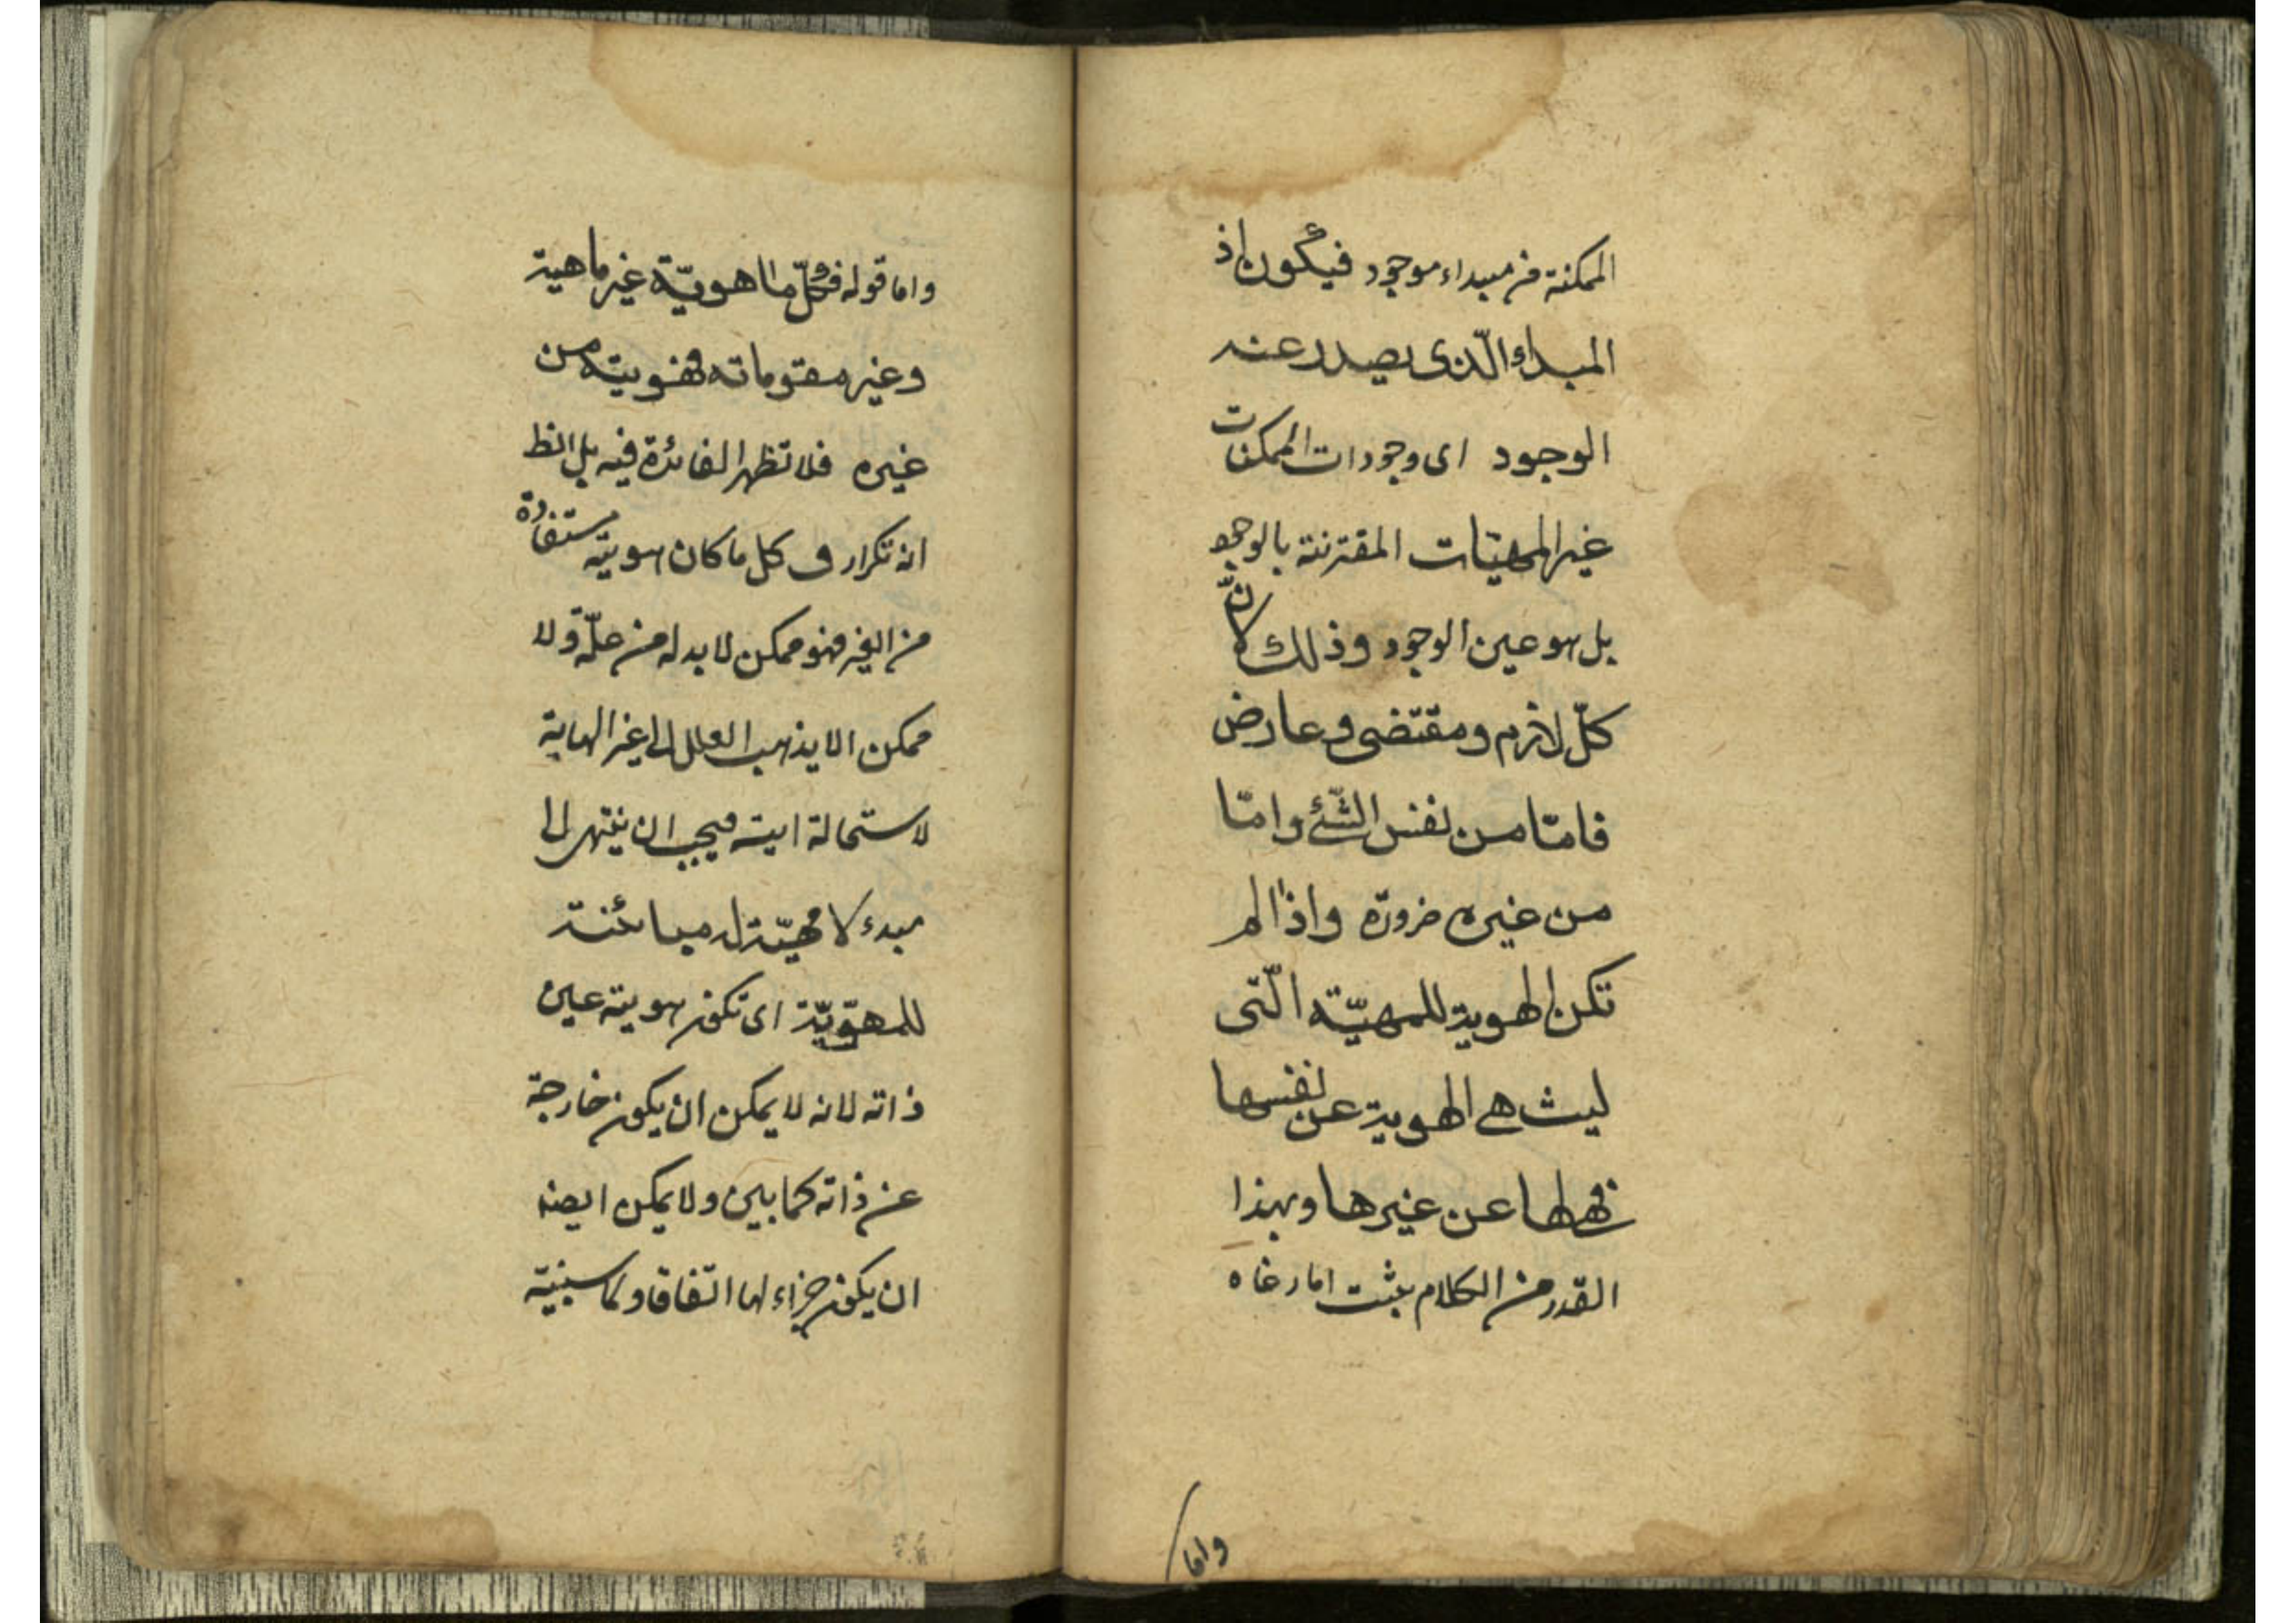 الممكنة من مبداء موجود فيكون اذ
المبداء الّذى يصدر عنه
الوجود اى وجودات الممكنات
غير المهيّات المقترنة بالوجود
بل هو عين الوجود وذلك لانّ
كلّ لازم ومقتضى وعارض
فامّا من نفس الشّئ وامّا
من غيره ضرورة واذا لم
تكن الهوية للمهيّة الّتى
ليست هى الهوية عن نفسها
فهى لها عن غيرها وبهذا
القدر من الكلام يثبت
واما
واما قوله فكلّ ما هويّة غير ماهية
وغير مقوماته فهويته من
غيره فلا تظهر الفائدة فيه بل الظ
انه تكرار فى كل ما كان هويته مستفادة
من الغير فهو ممكن لا بد له من علّة ولا
ممكن الا يذهب العلل الى غير النهاية
لاستحالة فيجب ان ينتهى الى
مبدء لا مهيّة له مبائنة
للهويّة اى تكون هويته عين
ذاته لانه لا يمكن ان يكون خارجة
عن ذاته كما بين ولا يمكن ايضا
ان يكون جزاء لها اتّفاقا ولما سنبيّنه